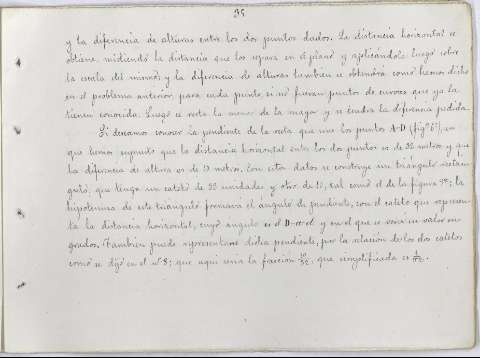 35
y la diferencia de alturas entre los dos puntos dados. La distancia horizontal se
obtiene, midiendo la distancia que los separa en el plano y aplicándola luego sobre
la escala del mismo; y la diferencia de alturas tambien se obtendra como hemos dicho
en el problema anterior, para cada punto, si no fueran puntos de curvas que ya la
tienen conocida. Luego se resta la menor de la mayor y se tendra la diferencia pedida.
Si deseamos conocer la pendiente de la recta que une los puntos A-D (fig.ª 6ª), en
que hemos supuesto que la distancia horizontal entre los dos puntos es de metros y que
la diferencia de altura es de metros. Con estos datos se construye un triángulo rectan-
gulo, que tenga un cateto de unidades y otro de tal como el de la figura 7ª; la
hipotenusa de este triángulo formará el ángulo de pendiente, con el cateto que represen-
ta la distancia horizontal, cuyo ángulo es el y en el que se verá su valor en
grados. Tambien puede representarse dicha pendiente, por la relación de los dos catetos
como se dijo en el nº 8; que aqui seria la fracción que simplificada es